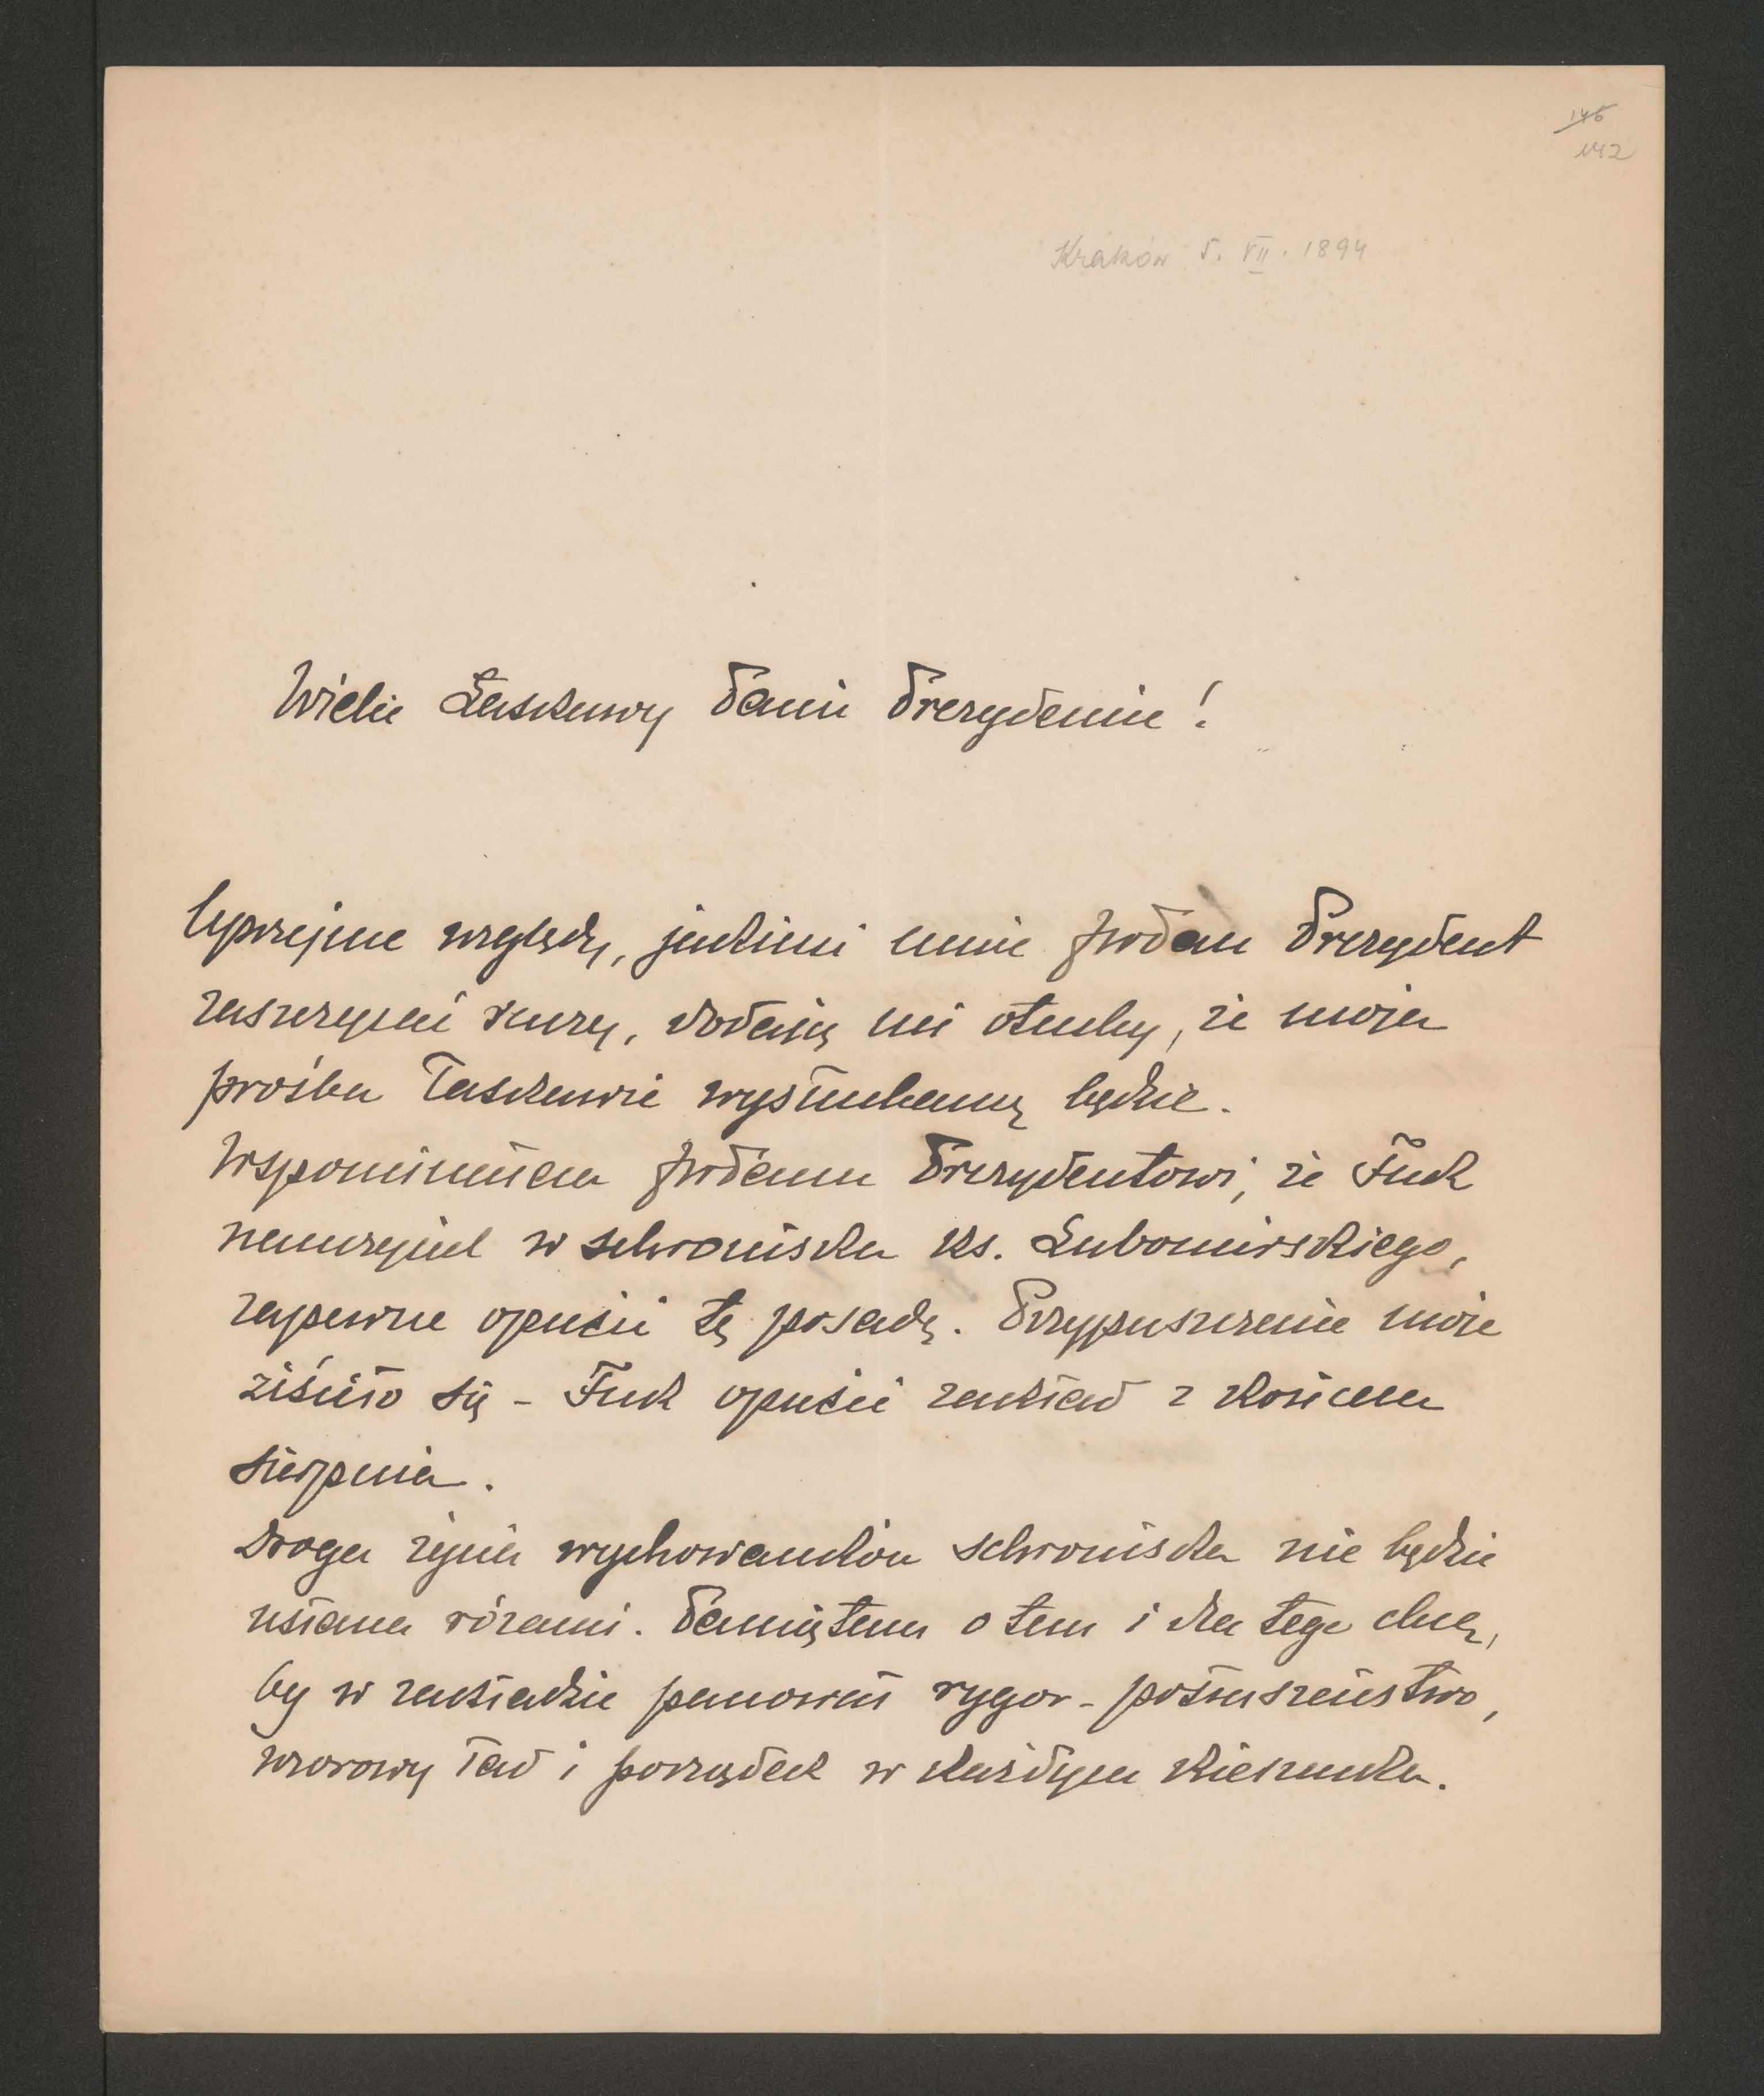 146
142
Kraków 5. VII. 1894
Wielce Łaskawy Panie Prezydencie!
Uprzejme względy, jakiemi mnie JWPan Prezydent
zaszczycać raczy, dodają mi otuchy, że moja
prośba łaskawie wysłuchaną będzie.
Wspomniałem JWPanu Prezydentowi, że Fuk
nauczyciel w schronisku ks. Lubomirskiego,
zapewne opuści tę posadę. Przypuszczenie moje
ziściło się - Fuk opuści zakład z końcem
sierpnia.
Droga życia wychowanków schroniska nie będzie
usłana różami. Pamiętam o tem i dla tego chcę,
by w zakładzie panował rygor - posłuszeństwo,
wzorowy ład i porządek w każdym kierunku.